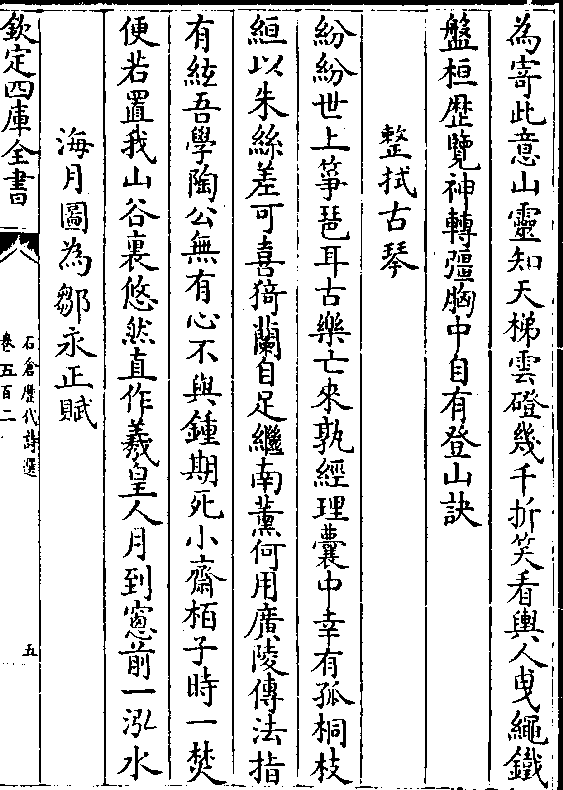 為寄此意山靈知天梯雲磴幾千折笑看輿人曳繩鐵
盤桓歴覽神轉彊胸中自有登山訣
整拭古琴
紛紛世上箏琶耳古樂亡來孰經理囊中幸有孤桐枝
絙以朱絲差可喜猗蘭自足繼南薰何用廣陵傳法指
有絃吾學陶公無有心不與鍾期死小齋栢子時一焚
便若置我山谷裏悠然直作羲皇人月到窻前一泓水
海月圖為鄒永正賦
欽定四庫全書
石倉歴代詩選
卷五百二
五